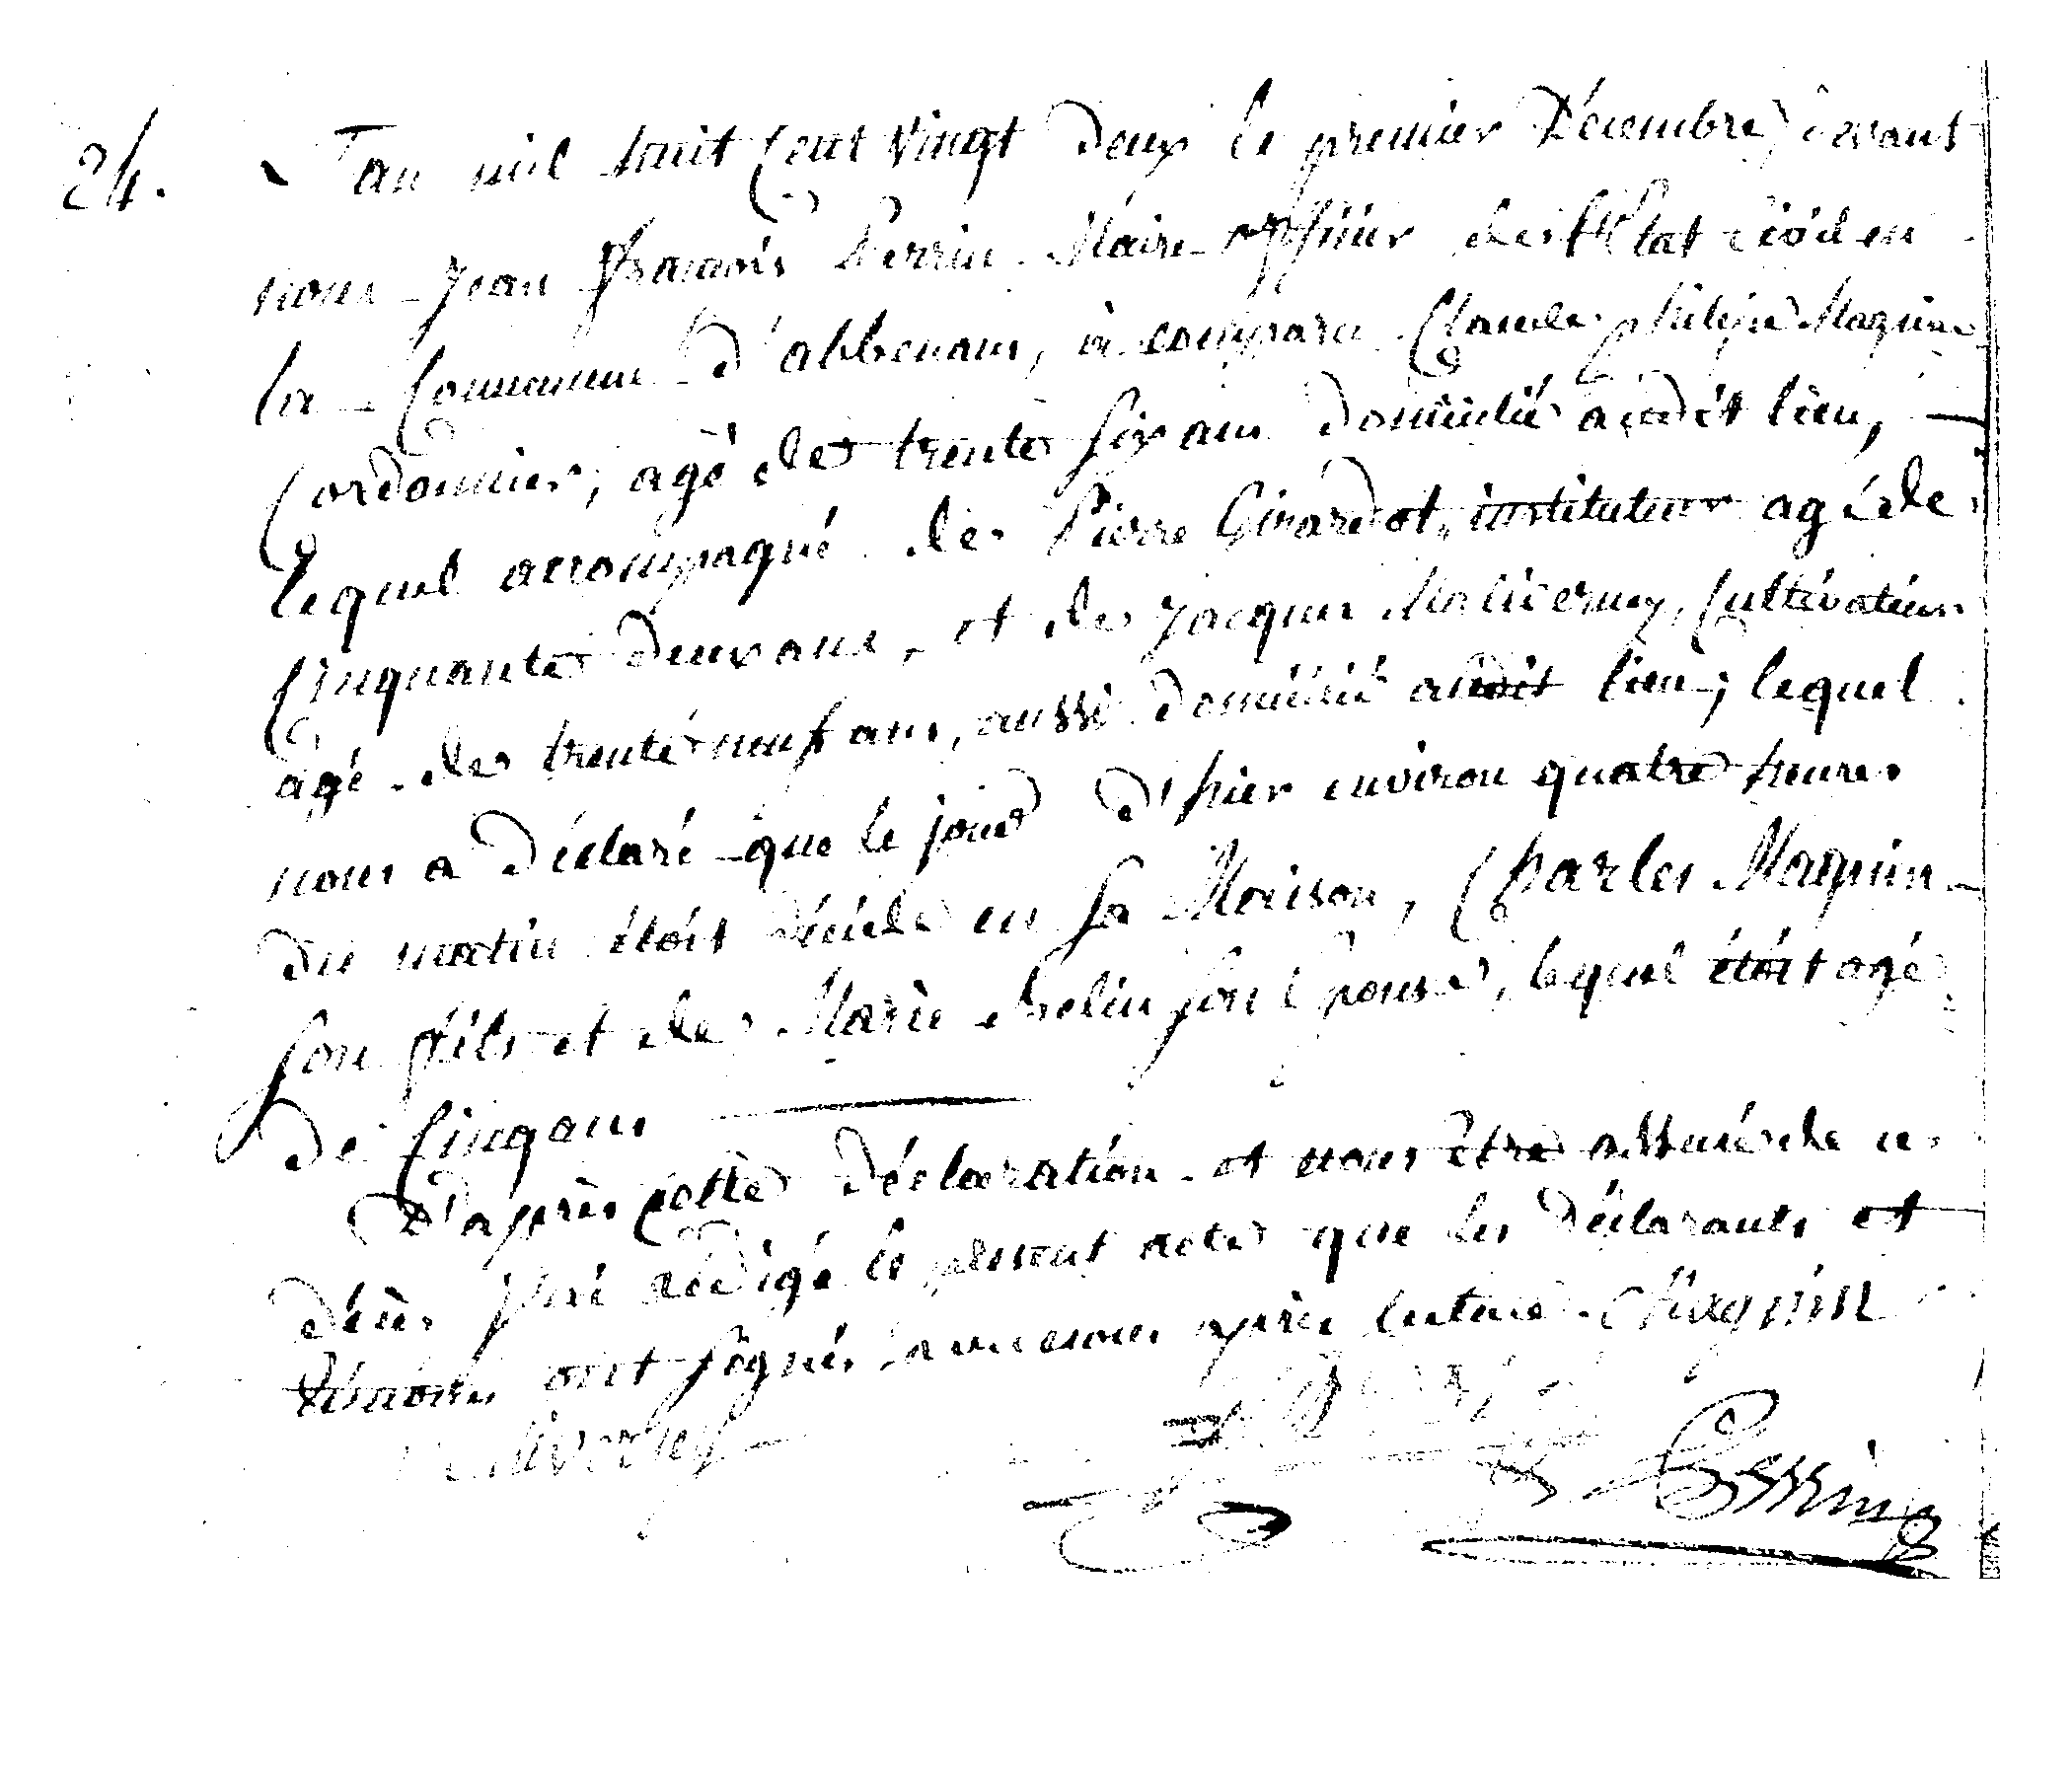 24. L'an mil huit Cent Vingt deux le premier Décembre, devant
nous Jean françois Perrin Maire officier de l'Etat civil en
la Commune d'abbenans, à comparu Claude philipe Maguin
Cordonnier, agé de trente six ans domicilié audit lieu,
lequel accompagné de Pierre Girardot, instituteur agé de
Cinquante deux ans, et de Jacques Maliverney, Cultivateur
agé de trente neuf ans, aussi domicilié audit lieu, lequel
nous a déclaré que le jour d'hier environ quatre heures
du matin étoit décédé en sa Maison, Charles Maguin
son fils et de Marie son Epouse, lequel étoit agé
de Cinq ans
D'après cette déclaration et nous être assuré de ce
décès, j'ai rédigé le présent acte que les déclarants et
témoins ont signés avec nous après lecture. Maguin
Perrin